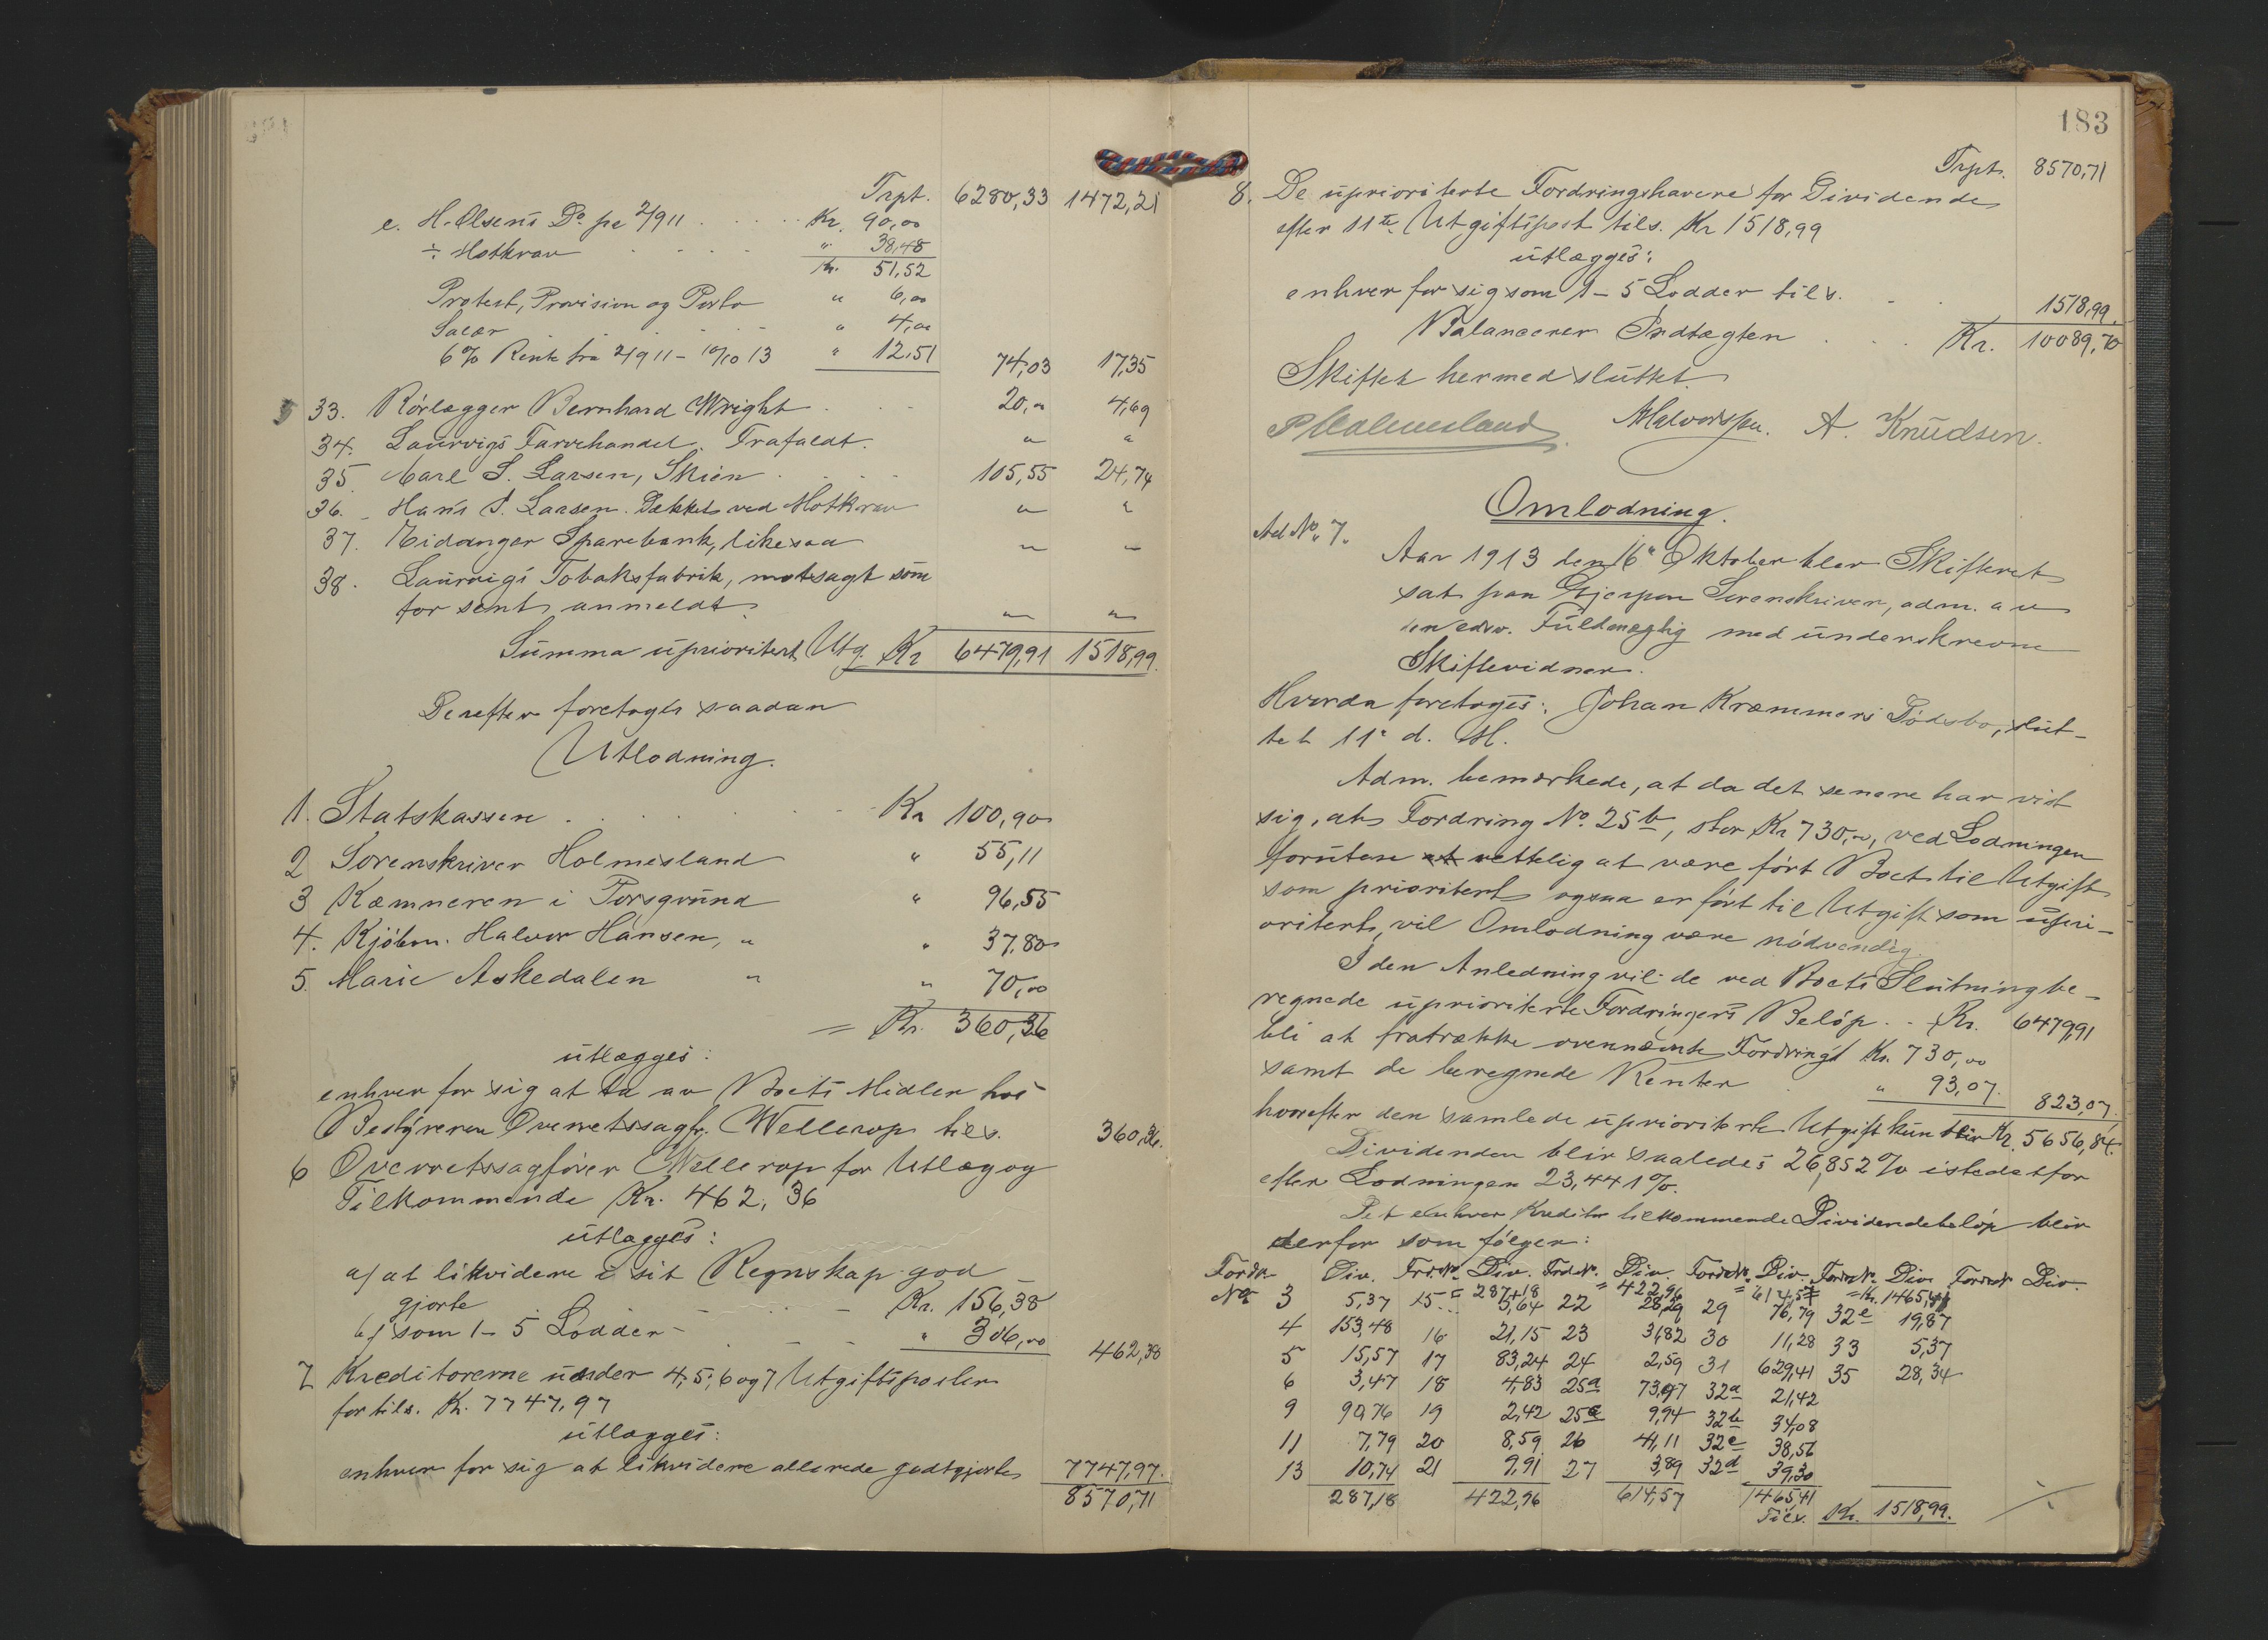 Trpt. 6280,33 1472,21
e. H. Olsens Do pr 2/9 11 . . . . Kr. 90,00
÷ Motkrav . . . . " 38,48
Kr. 51,52
Protest, Provision og Porto " 6,00
Salær . . . . " 4,00
6% Rente fra 2/9 11 - 10/10 13 " 12,51 74,03 17,35
33. Rörlægger Bernhard Wright . . . 20,00 4,69
34. Laurvigs Farvehandel. Frafaldt. " "
35. Carl S. Larsen, Skien . . . . 105,55 24,74
36. Hans J. Larsen. Dækket ved Motkrav " "
37. Eidanger Sparebank, likesaa " "
38. Laurvigs Tobaksfabrik, motsagt som
for sent anmeldt. " "
Summa uprioritert Utg. Kr 6479,91 1518,99.
Derefter foretoges saadan
Utlodning.
1. Statskassen . . . . . Kr 100,90
2 Sorenskriver Holmesland " 55,11
3 Kæmneren i Porsgrund " 96,55
4. Kjöbm. Halvor Hansen, " " 37,80
5. Marie Askedalen " " 70,00
= Kr. 360,36
utlægges:
enhver for sig at ta av Boets Midler hos
Bestyreren Overretssagfr. Wellerop tils. 360,36.
6 Overretssagförer Wellerop for Utlæg og
Tilkommende Kr. 462,36
utlægges:
a/ at likvidere i sit Regnskap god
gjorte - - - Kr. 156,38
b/ som 1-5 Lodder - - - " 306,00 462,38
7 Kreditorerne under 4, 5, 6 og 7 Utgiftsposter
for tils. Kr. 7747,97
utlægges:
enhver for sig at likvidere allerede godtgjorte 7747,97.
8570,71
183
Trpt. 8570,71
8. De uprioriterte Fordringshavere for Dividende
efter 11te Utgiftspost tils. Kr 1518,99
utlægges:
enhver for sig som 1-5 Lodder tils. . . 1518,99.
Balancerer Indtægten . . . Kr. 10089,70
Skiftet hermed sluttet.
P Holmesland. A. Knudsen.
Omlodning.
Ad No. 7.
Aar 1913 den 16de Oktober blev Skifteret
sat paa Gjerpen Sorenskriveri, adm. av
edsv. Fuldmægtig med underskrevne
Skiftevidner.
Hvorda foretoges: Johan Kræmmers Dödsbo, slut-
tet 11te d. M.
Adm. bemærkede, at da det senere har vist
sig, at Fordring No. 25b, stor Kr 730,00, ved Lodningen
foruten at rettelig at være fört Boet til Utgift
som prioritert ogsaa er fört til Utgift som upri-
oritert, vil Omlodning være nödvendig.
I den Anledning vil de ved Boets Slutning be-
regnede uprioriterte Fordringers Belöp . . Kr. 6479,91
bli at fratrække ovennævnte Fordring Kr. 730,00
samt de beregnede Renter " 93,07. 823,07.
hvorefter den samlede uprioriterte Utgift kun blir Kr. 5656,84.
Dividenden blir saaledes 26,852% istedetfor
efter Lodningen 23,441%.
Det enhver Kreditor tilkommende Dividendebelöp blir
derfor som fölger:
Fordr. Div. Frd.No. Div. Frd.No. Div. Fordr.No. Div. Fordr.No. Div. Fordr.No. Div.
= 287,18 = 422,96 = 614,57 = Kr. 1465,41
No. 3 5,37 15 5,64 22 28,29 29 76,79 32e 19,87
4 153,48 16 21,15 23 31,82 30 11,28 33 5,37
5 15,57 17 83,24 24 2,59 31 629,41 35 28,34
6 3,47 18 4,83 25a 73,97 32a 21,42
9 90,76 19 2,42 25c 9,94 32b 34,08
11 7,79 20 8,59 26 41,11 32c 38,56
13 10,74 21 9,91 27 3,89 32d 39,30
287,18 422,96 614,57 1465,41
Tils. Kr. 1518,99.